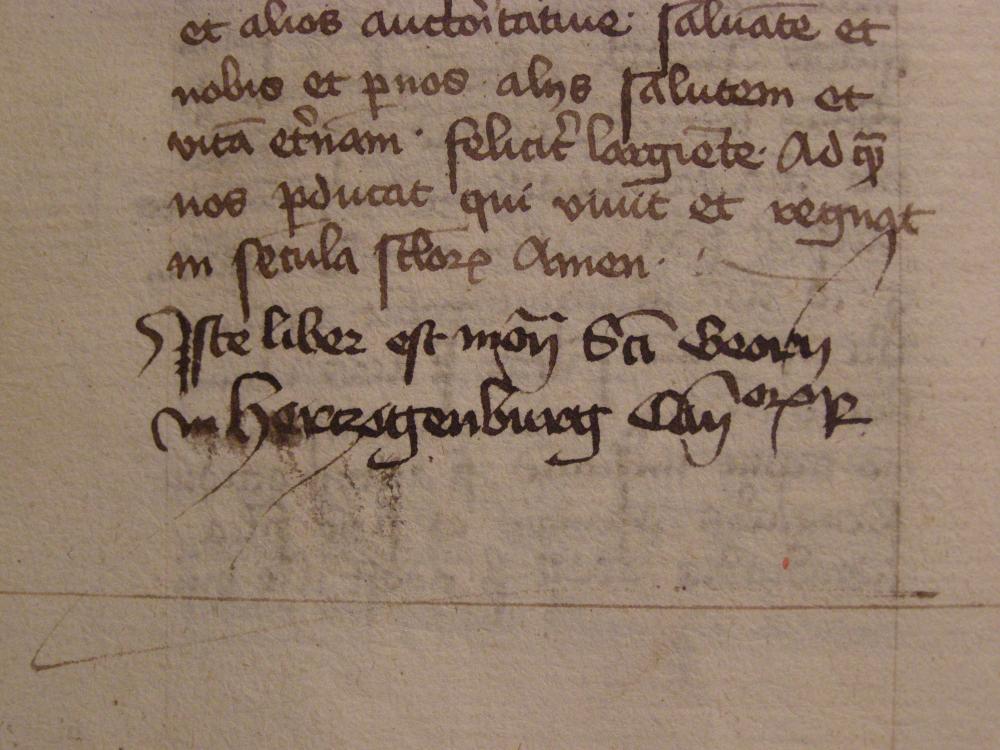 et alios auctoritatiue: saluatē et
nobis et ꝑ nos alijs salutem et
vitā et̉nam · felicit̉ largiēte· Ad qᷓ
nos ꝑducat qui viuit et regnat
in secula sc̄lorꝝ Amen·
Iste liber est mōn̄ Sc̄i Georij
in Hertzogenburg Can̄orꝝ R